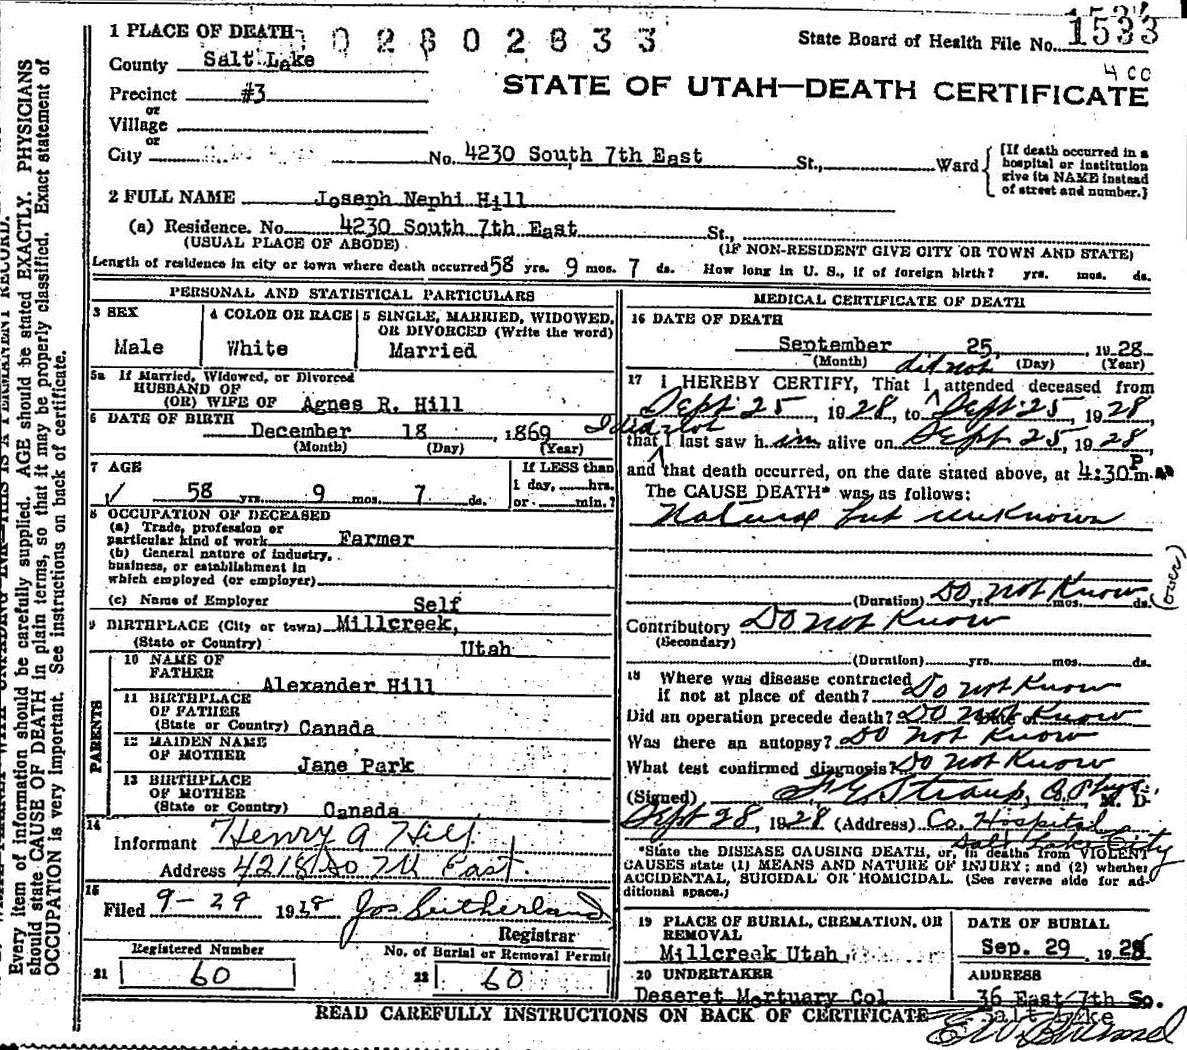 1 PLACE OF DEATH
0 2 8 0 2 8 3 3
State Board of Health File No. 1533
County Salt Lake
4 cc
STATE OF UTAH—DEATH CERTIFICATE
Precinct #3
or
Village
or
City No. 4230 South 7th East St., Ward
[If death occurred in a
hospital or institution
give its NAME instead
of street and number.]
2 FULL NAME Joseph Nephi Hill
(a) Residence. No. 4230 South 7th East St.,
(USUAL PLACE OF ABODE) (IF NON-RESIDENT GIVE CITY OR TOWN AND STATE)
Length of residence in city or town where death occurred 58 yrs. 9 mos. 7 ds. How long in U. S., if of foreign birth? yrs. mos. ds.
PERSONAL AND STATISTICAL PARTICULARS
3 SEX
Male
4 COLOR OR RACE
White
5 SINGLE, MARRIED, WIDOWED,
OR DIVORCED (Write the word)
Married
5a If Married, Widowed, or Divorced
HUSBAND OF
(OR) WIFE OF Agnes R. Hill
6 DATE OF BIRTH
December 18 , 1869
(Month) (Day) (Year)
7 AGE
✓ 58 yrs. 9 mos. 7 ds.
If LESS than
1 day, hrs.
or min.?
8 OCCUPATION OF DECEASED
(a) Trade, profession or
particular kind of work Farmer
(b) General nature of industry,
business, or establishment in
which employed (or employer)
(c) Name of Employer Self
9 BIRTHPLACE (City or town) Millcreek,
(State or Country) Utah
PARENTS
10 NAME OF
FATHER Alexander Hill
11 BIRTHPLACE
OF FATHER
(State or Country) Canada
12 MAIDEN NAME
OF MOTHER Jane Park
13 BIRTHPLACE
OF MOTHER
(State or Country) Canada
14
Informant Henry A Hill
Address 4218 So 7th East.
15
Filed 9-29 1928 Jos Sutherland
Registrar
Registered Number
21 60
No. of Burial or Removal Permit
22 60
MEDICAL CERTIFICATE OF DEATH
16 DATE OF DEATH
September 25, , 1928
(Month) (Day) (Year)
did not
17 I HEREBY CERTIFY, That I attended deceased from
Sept 25 , 1928, to Sept 25, 1928,
I did not
that I last saw him alive on Sept 25, 1928,
and that death occurred, on the date stated above, at 4:30 P m.
The CAUSE DEATH* was as follows:
Natural but unknown
(Duration) Do not Know yrs. mos. ds.
(over)
Contributory Do not Know
(Secondary)
(Duration) yrs. mos. ds.
18 Where was disease contracted
if not at place of death? Do not Know
Did an operation precede death? Do not Know
Was there an autopsy? Do not Know
What test confirmed diagnosis? Do not Know
(Signed) M. D.
Sept 28, 1928 (Address) Co. Hospital
Salt Lake City
*State the DISEASE CAUSING DEATH, or, in deaths from VIOLENT
CAUSES state (1) MEANS AND NATURE OF INJURY; and (2) whether
ACCIDENTAL, SUICIDAL OR HOMICIDAL. (See reverse side for ad-
ditional space.)
19 PLACE OF BURIAL, CREMATION, OR
REMOVAL
Millcreek Utah
DATE OF BURIAL
Sep. 29 , 1928
20 UNDERTAKER
Deseret Mortuary Col
ADDRESS
36 East 7th So.
Salt Lake
READ CAREFULLY INSTRUCTIONS ON BACK OF CERTIFICATE
Every item of information should be carefully supplied. AGE should be stated EXACTLY. PHYSICIANS
should state CAUSE OF DEATH in plain terms, so that it may be properly classified. Exact statement of
OCCUPATION is very important. See instructions on back of certificate.